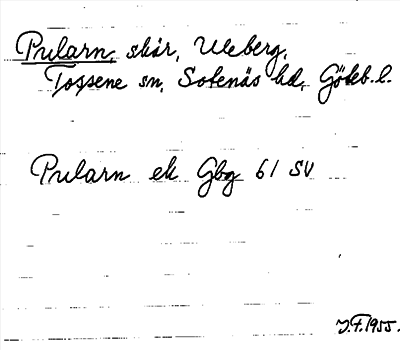 Pularn, skär, Uleberg,
Tossene sn, Sotenäs hd, Göteb. l.
Pularn ek Gbg 61 SV
J.F. 1955.